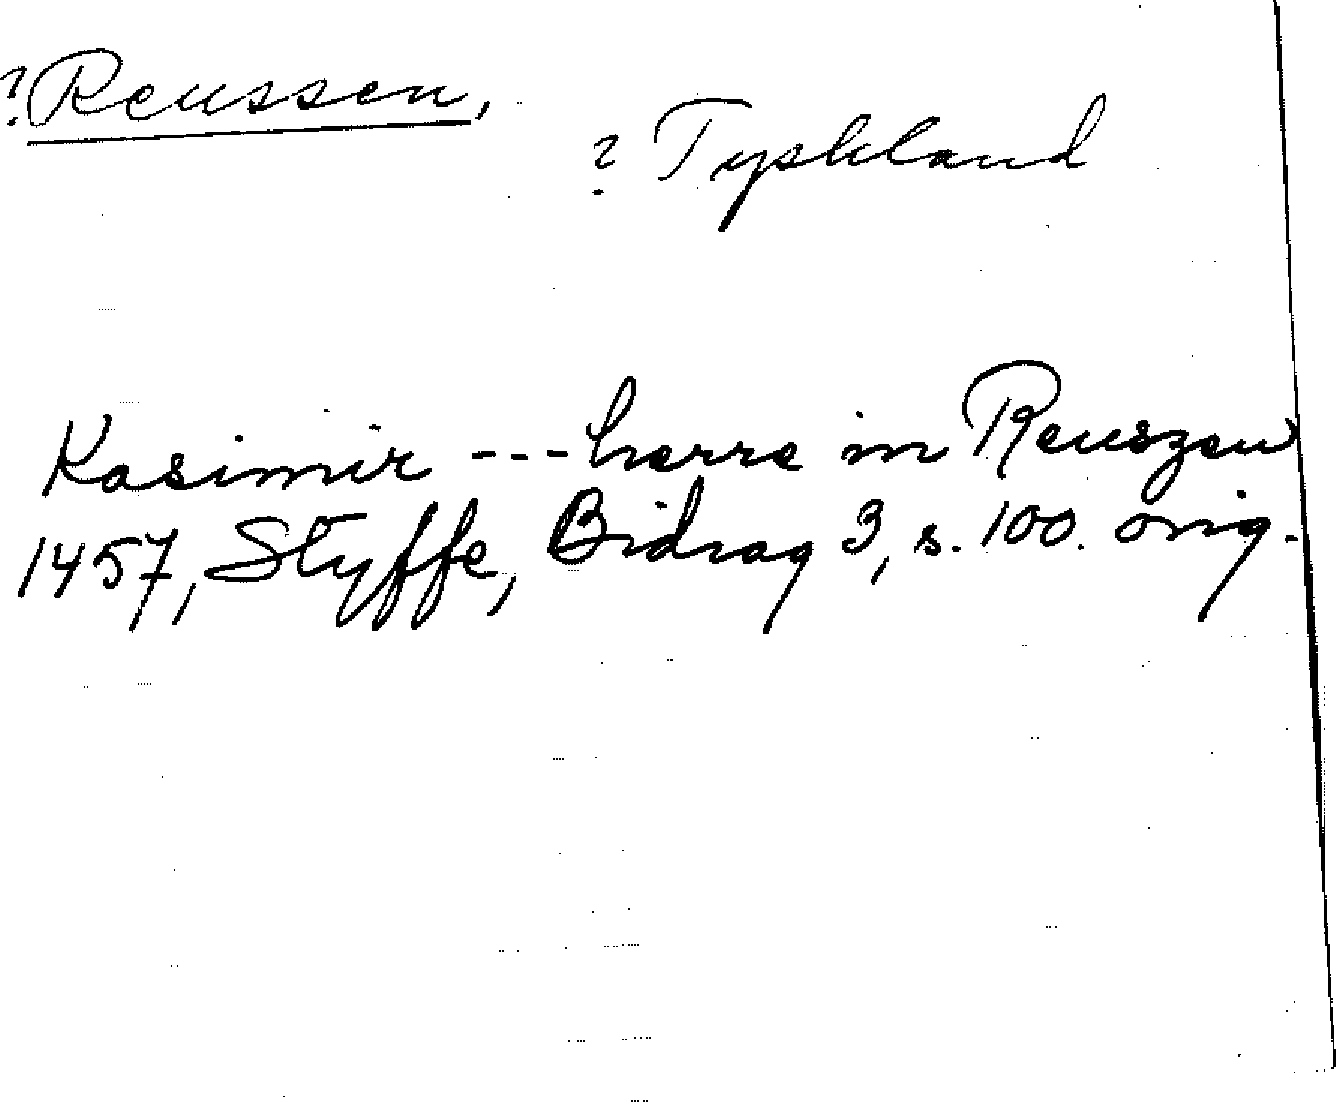 ?Reussen,
? Tyskland
Kasimir --- herre in Reuszen
1457, Styffe, Bidrag 3, s. 100. orig.